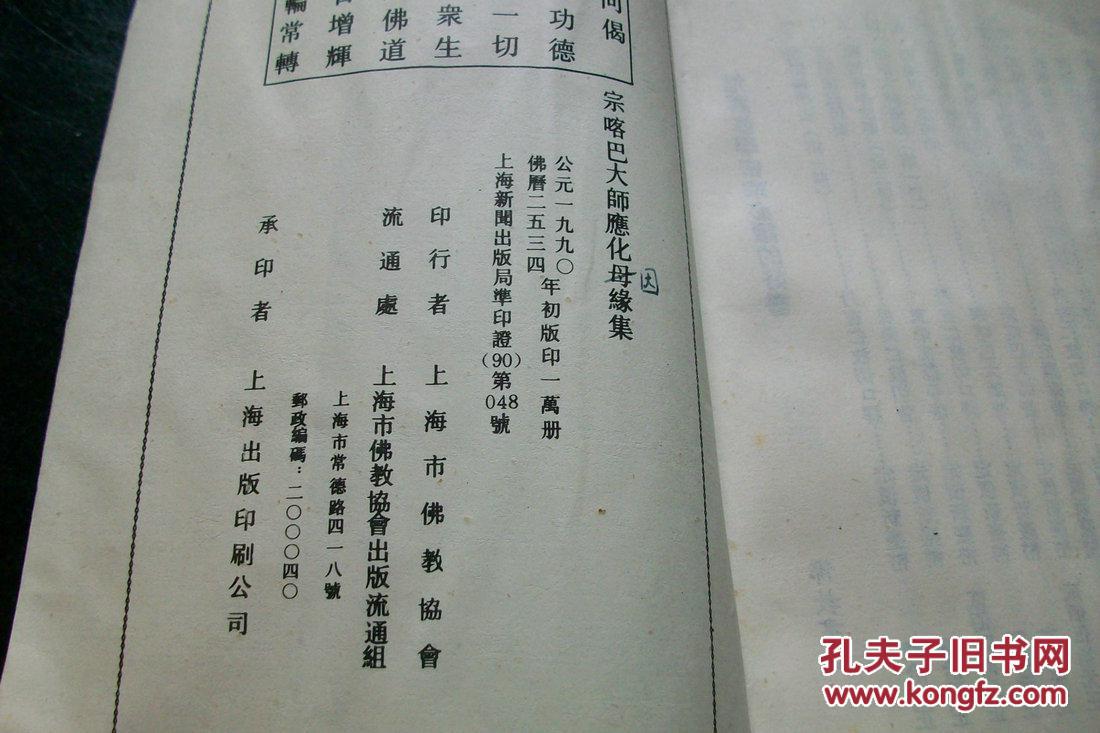 向偈
功德
一切
衆生
佛道
增輝
輪常轉
宗喀巴大師應化母緣集
因
公元一九九〇
佛曆二五三四
年初版印一萬册
上海新聞出版局準印證(90)第048號
印行者 上海市佛教協會
流通處 上海市佛教協會出版流通組
上海市常德路四一八號
郵政編碼：二〇〇〇四〇
承印者 上海出版印刷公司
孔夫子旧书网
www.kongfz.com